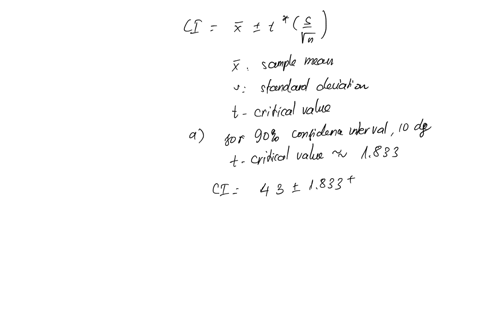 CI = x̄ ± t * (s/√n)
x̄. sample mean
s: standard deviation
t - critical value
a) for 90% confidence interval, 10 dg
t - critical value ≈ 1.833
CI = 43 ± 1.833 +